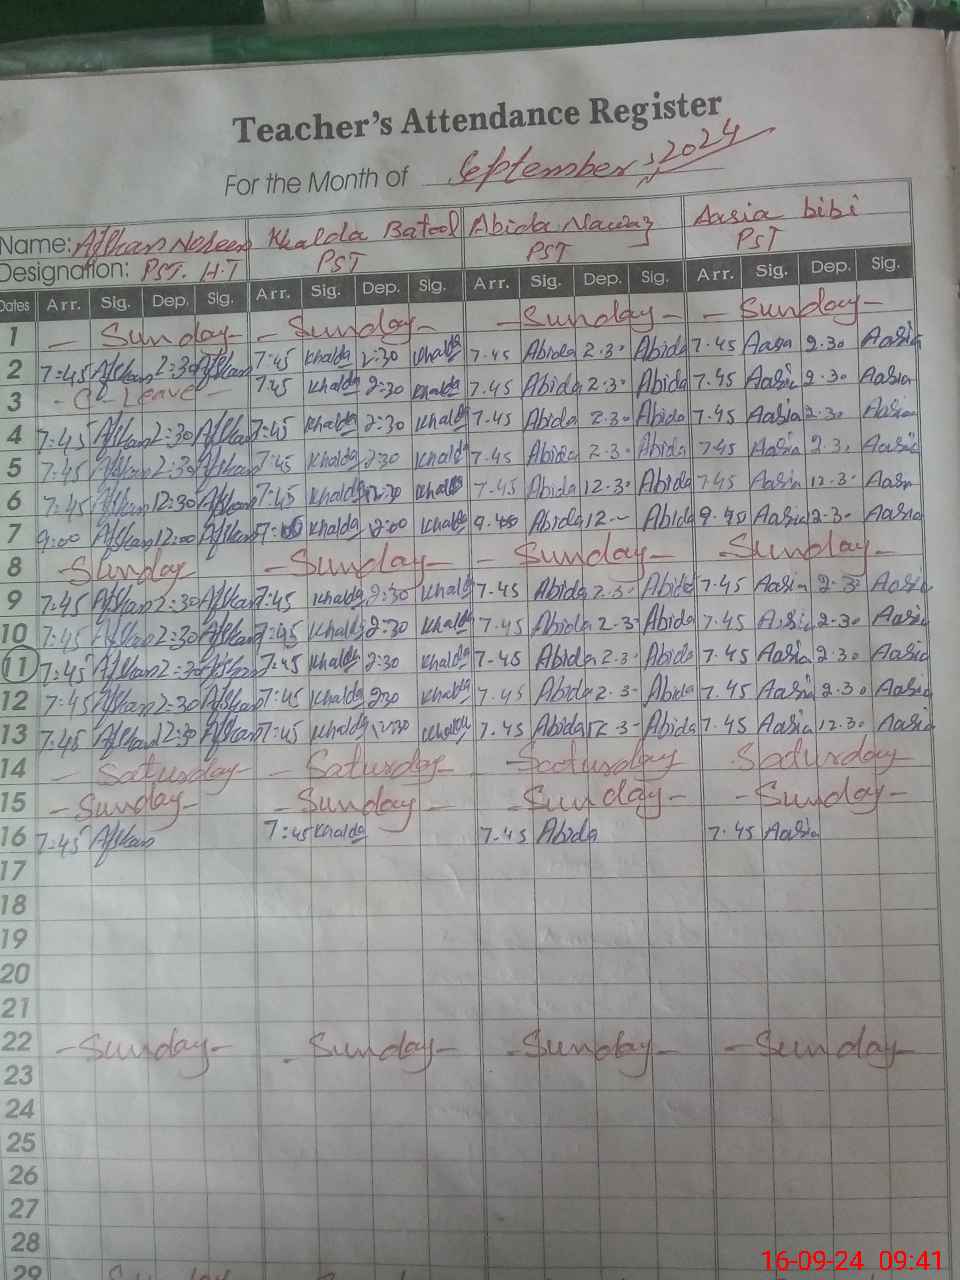 Teacher's Attendance Register
For the Month of September, 2024
Name: Afshan Nadeem Khalda Batool Abida Nawaz Aasia bibi
Designation: PST. H.T PST PST PST
Dates Arr. Sig. Dep. Sig. Arr. Sig. Dep. Sig. Arr. Sig. Dep. Sig. Arr. Sig. Dep. Sig.
1 - Sunday - - Sunday - - Sunday - - Sunday -
2 7:45 Afshan 2:30 Afshan 7:45 Khalda 2:30 Khalda 7.45 Abida 2.30 Abida 7.45 Aasia 2.30 Aasia
3 - Leave - 7:45 Khalda 2:30 Khalda 7.45 Abida 2.30 Abida 7.45 Aasia 2.30 Aasia
4 7:45 Afshan 2:30 Afshan 7:45 Khalda 2:30 Khalda 7.45 Abida 2.30 Abida 7.45 Aasia 2.30 Aasia
5 7:45 Afshan 2:30 Afshan 7:45 Khalda 2:30 Khalda 7.45 Abida 2.30 Abida 7.45 Aasia 2.30 Aasia
6 7:45 Afshan 12:30 Afshan 7:45 Khalda 12:30 Khalda 7.45 Abida 12.30 Abida 7.45 Aasia 12.30 Aasia
7 9:00 Afshan 12:00 Afshan Khalda 12:00 Khalda Abida 12 - Abida Aasia Aasia
8 - Sunday - Sunday - - Sunday - Sunday -
9 7:45 Afshan 2:30 Afshan 7:45 Khalda 2:30 Khalda 7.45 Abida 2.30 Abida 7.45 Aasia 2.30 Aasia
10 7:45 Afshan 2:30 Afshan 7:45 Khalda 2:30 Khalda 7.45 Abida 2.30 Abida 7.45 Aasia 2.30 Aasia
11 7:45 Afshan 2:30 Afshan 7:45 Khalda 2:30 Khalda 7.45 Abida 2.30 Abida 7.45 Aasia 2.30 Aasia
12 7:45 Afshan 2:30 Afshan 7:45 Khalda 2:30 Khalda 7.45 Abida 2.30 Abida 7.45 Aasia 2.30 Aasia
13 7:45 Afshan 12:30 Afshan 7:45 Khalda 12:30 Khalda 7.45 Abida 12.30 Abida 7.45 Aasia 12.30 Aasia
14 - Saturday - - Saturday - - Saturday Saturday
15 - Sunday - - Sunday - - Sunday - - Sunday -
16 7:45 Afshan 7:45 Khalda 7.45 Abida 7.45 Aasia
17
18
19
20
21
22 - Sunday - - Sunday - - Sunday - - Sunday -
23
24
25
26
27
28
29
16-09-24 09:41